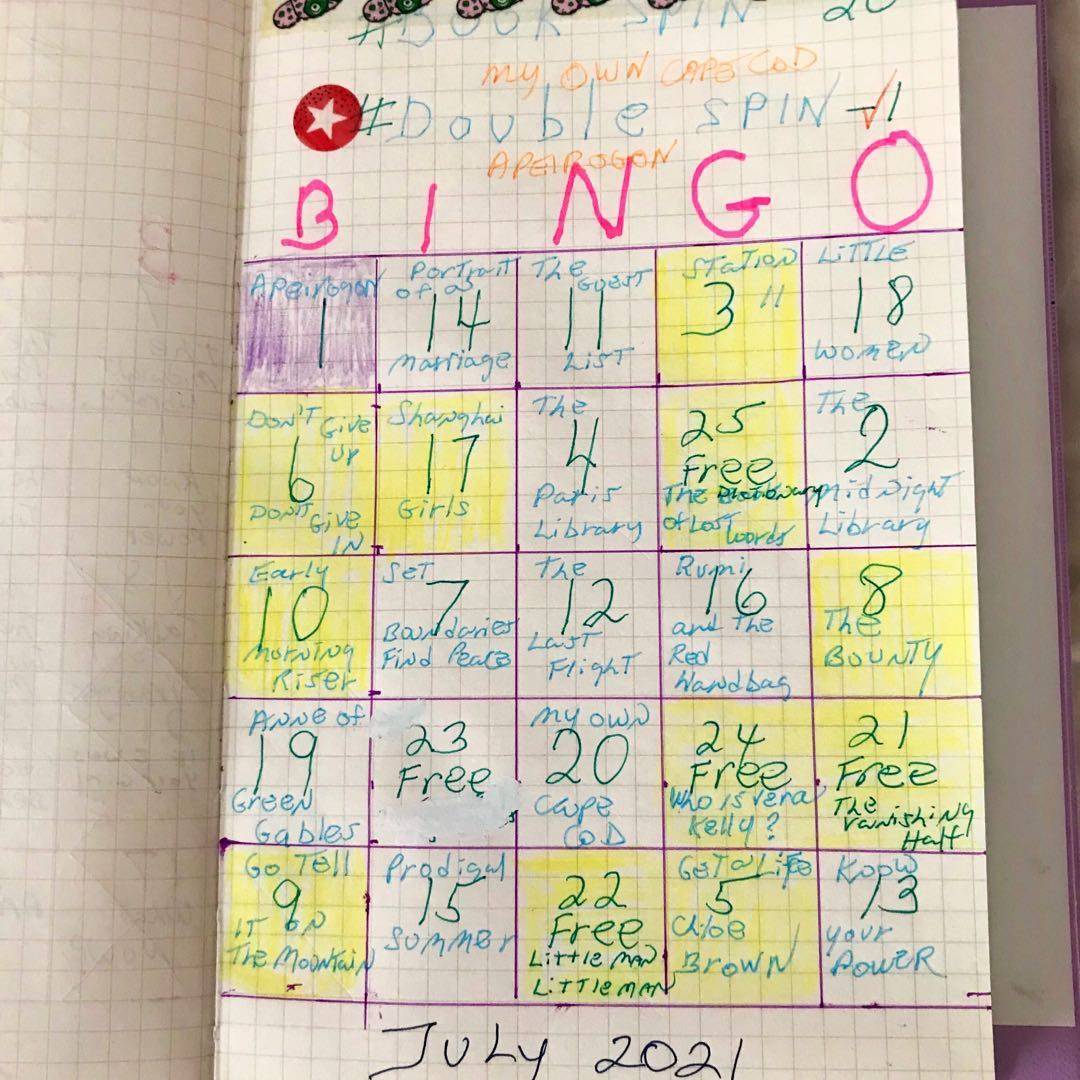 #BOOK SPIN 20
MY OWN CAPE COD
#Double SPIN 1
APEIROGON
B I N G O
Apeirogon
1
Portrait
of a
14
Marriage
The
Guest
11
List
Station
3
11
Little
18
Women
Don't Give
Up
6
Don't Give
In
Shanghai
17
Girls
The
4
Paris
Library
25
Free
The Dictionary
of Lost
Words
The
2
Midnight
Library
Early
10
Morning
Riser
Set
7
Boundaries
Find Peace
The
12
Last
Flight
Rumi
16
and The
Red
Handbag
8
The
Bounty
Anne of
19
Green
Gables
23
Free
My Own
20
Cape
Cod
24
Free
Who is Vera
Kelly?
21
Free
The
Vanishing
Half
Go Tell
9
It on
The Mountain
Prodigal
15
Summer
22
Free
Little Man
Little Man
Get a Life
5
Chloe
Brown
Know
13
your
Power
July 2021